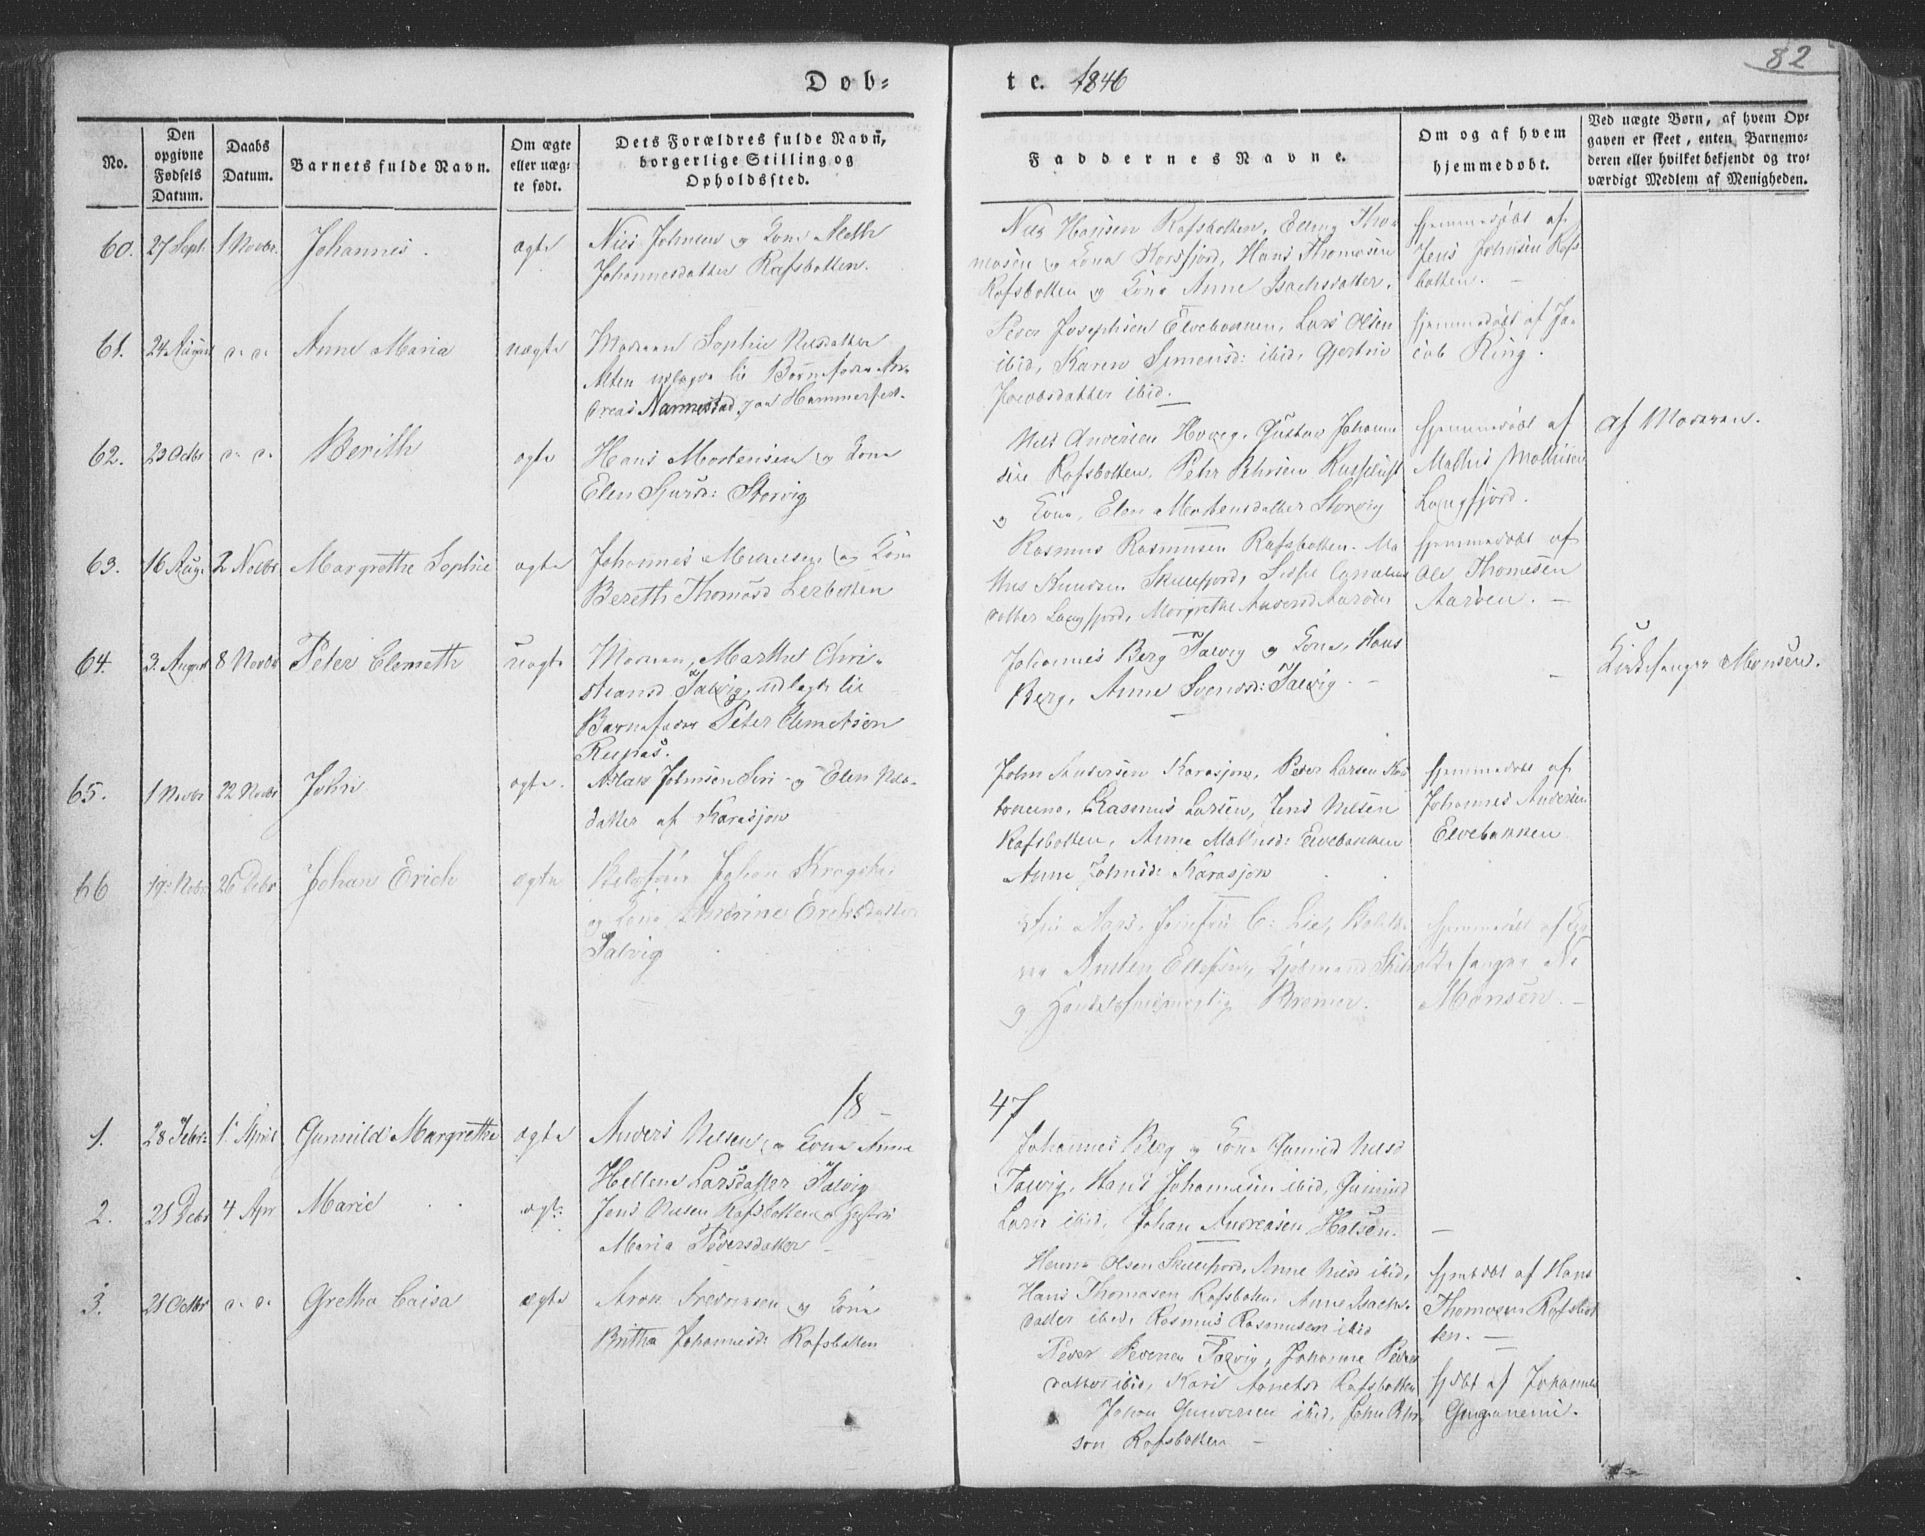 82
Døb-
te. 1846
No.
Den opgivne Fødsels Datum.
Daabs Datum.
Barnets fulde Navn.
Om ægte eller uæg-te født.
Dets Forældres fulde Navn, borgerlige Stilling og Opholdssted.
Faddernes Navne.
Om og af hvem hjemmedøbt.
Ved uægte Børn, af hvem Op-
gaven er skeet, enten Barnemo-
deren eller hvilket bekjendt og tro-
værdigt Medlem af Menigheden.
60. 27 Sept. 1 Novbr. Johannes. ægte
Nils Johnsen og Kone Meth
Johannesdatter Rafsbotten.
Nils Hansen Rafsbotten, Elling Tho-
masen og Kone Korsfjord, Hans Thomasen
Rafsbotten og Kone Anne Isachsdatter.
hjemmedøbt af
Jens Johnsen Rafs-
botten. –
61. 24 August d. d. Anne Maria uægte
Moderen Sophie Nilsdatter
Alten udlagde til Barnefader An-
dreas Nannestad, paa Hammerfest.
Peder Josephsen Elvebakken, Lars Olsen
ibid, Karen Simensd: ibid, Gjertrue
Jacobsdatter ibid.
hjemmedøbt af Ja-
cob Ring.
af Moderen.
62. 23 Octbr d. d. Berith ægte
Hans Mortensen og Kone
Elen Sjursd: Storvig
Nils Andersen Hvveg, Gustav Johanne-
sen Rafsbotten, Pehr Pehrsen Kusseluft
og Kone, Elen Mortensdatter Storvig
hjemmedøbt af
Mathis Mathisen
Langfjord.
63. 16 Aug. 2 Novbr Margrethe Sophie ægte
Johannes Mikkelsen og Kone
Bereth Thomasd Lerbotten
Rasmus Rasmusen Rafsbotten. Ma-
this Knudsen Skillefjord, Sidsel
datter Langfjord, Margrethe Andersd Aarøen
hjemmedøbt af
Ole Thomesen
Aarøen. –
64. 3. August 8 Novbr Peter Elemeth uægte
Moderen, Marthe Chri-
stiansd Talvig, udlagde til
Barnefader Peter Elemetsen
Reipas.
Johannes Berg Talvig og Kone, Hans
Berg, Anne Svensd: Talvig. –
–
Kirkesanger Monsen.
65. 1 Novbr 22 Novbr John ægte.
Aslak Johnsen Siri og Elen Nils-
datter af Karasjok
John Andersen Karasjok, Peder Larsen Kau-
tokeino, Rasmus Larsen, Jens Nilsen
Rafsbotten, Anne Mathisd: Elvebakken
Anne Johnsd: Karasjok
hjemmedøbt af
Johannes Andersen
Elvebakken
66 19 Novbr 26 Debr Johan Erich ægte
Johan
og Kone Andrine Erichsdatter
Talvig
Aars, Jomfru C: Lie,
Austen Ellefsen, Kjøbmand
og Handelsfuldmægtig Bremer.
hjemmedøbt af Kir-
kesanger N
Monsen. –
18 – 47
1. 28 Febr: 1. April Gunnild Margrethe ægte
Anders Nilsen og Kone Anne
Hellene Larsdatter Talvig
Johannes Berg og Kone Gunnild Nilsd
Talvig, Hans Johannesen ibid, Gunnild
Larsd ibid, Johan Andreasen Halsen.
–
2. 28 Debr 4 Apr Marie ægt:
Jens Nilsen Rafsbotten og Hustru
Maria Pedersdatter –
Henrik Olsen Skillefjord, Anne Nilsd ibid,
Hans Thomasen Rafsbotten, Anne Isachs-
datter ibid, Rasmus Rasmusen ibid
hjmdøbt af Hans
Thomasen Rafsbot-
ten. –
3. 28 Octbr d. d. Grethe Caisa ægte
Aron Fredriksen og Kone
Britha Johannesd: Rafsbotten
Peder Pedersen Talvig, Johanna Peders-
datter ibid, Kari Arnetsd Rafsbotten
Johan Gundersen ibid, John Pehr-
son Rafsbotten –
hjdøbt af Johannes